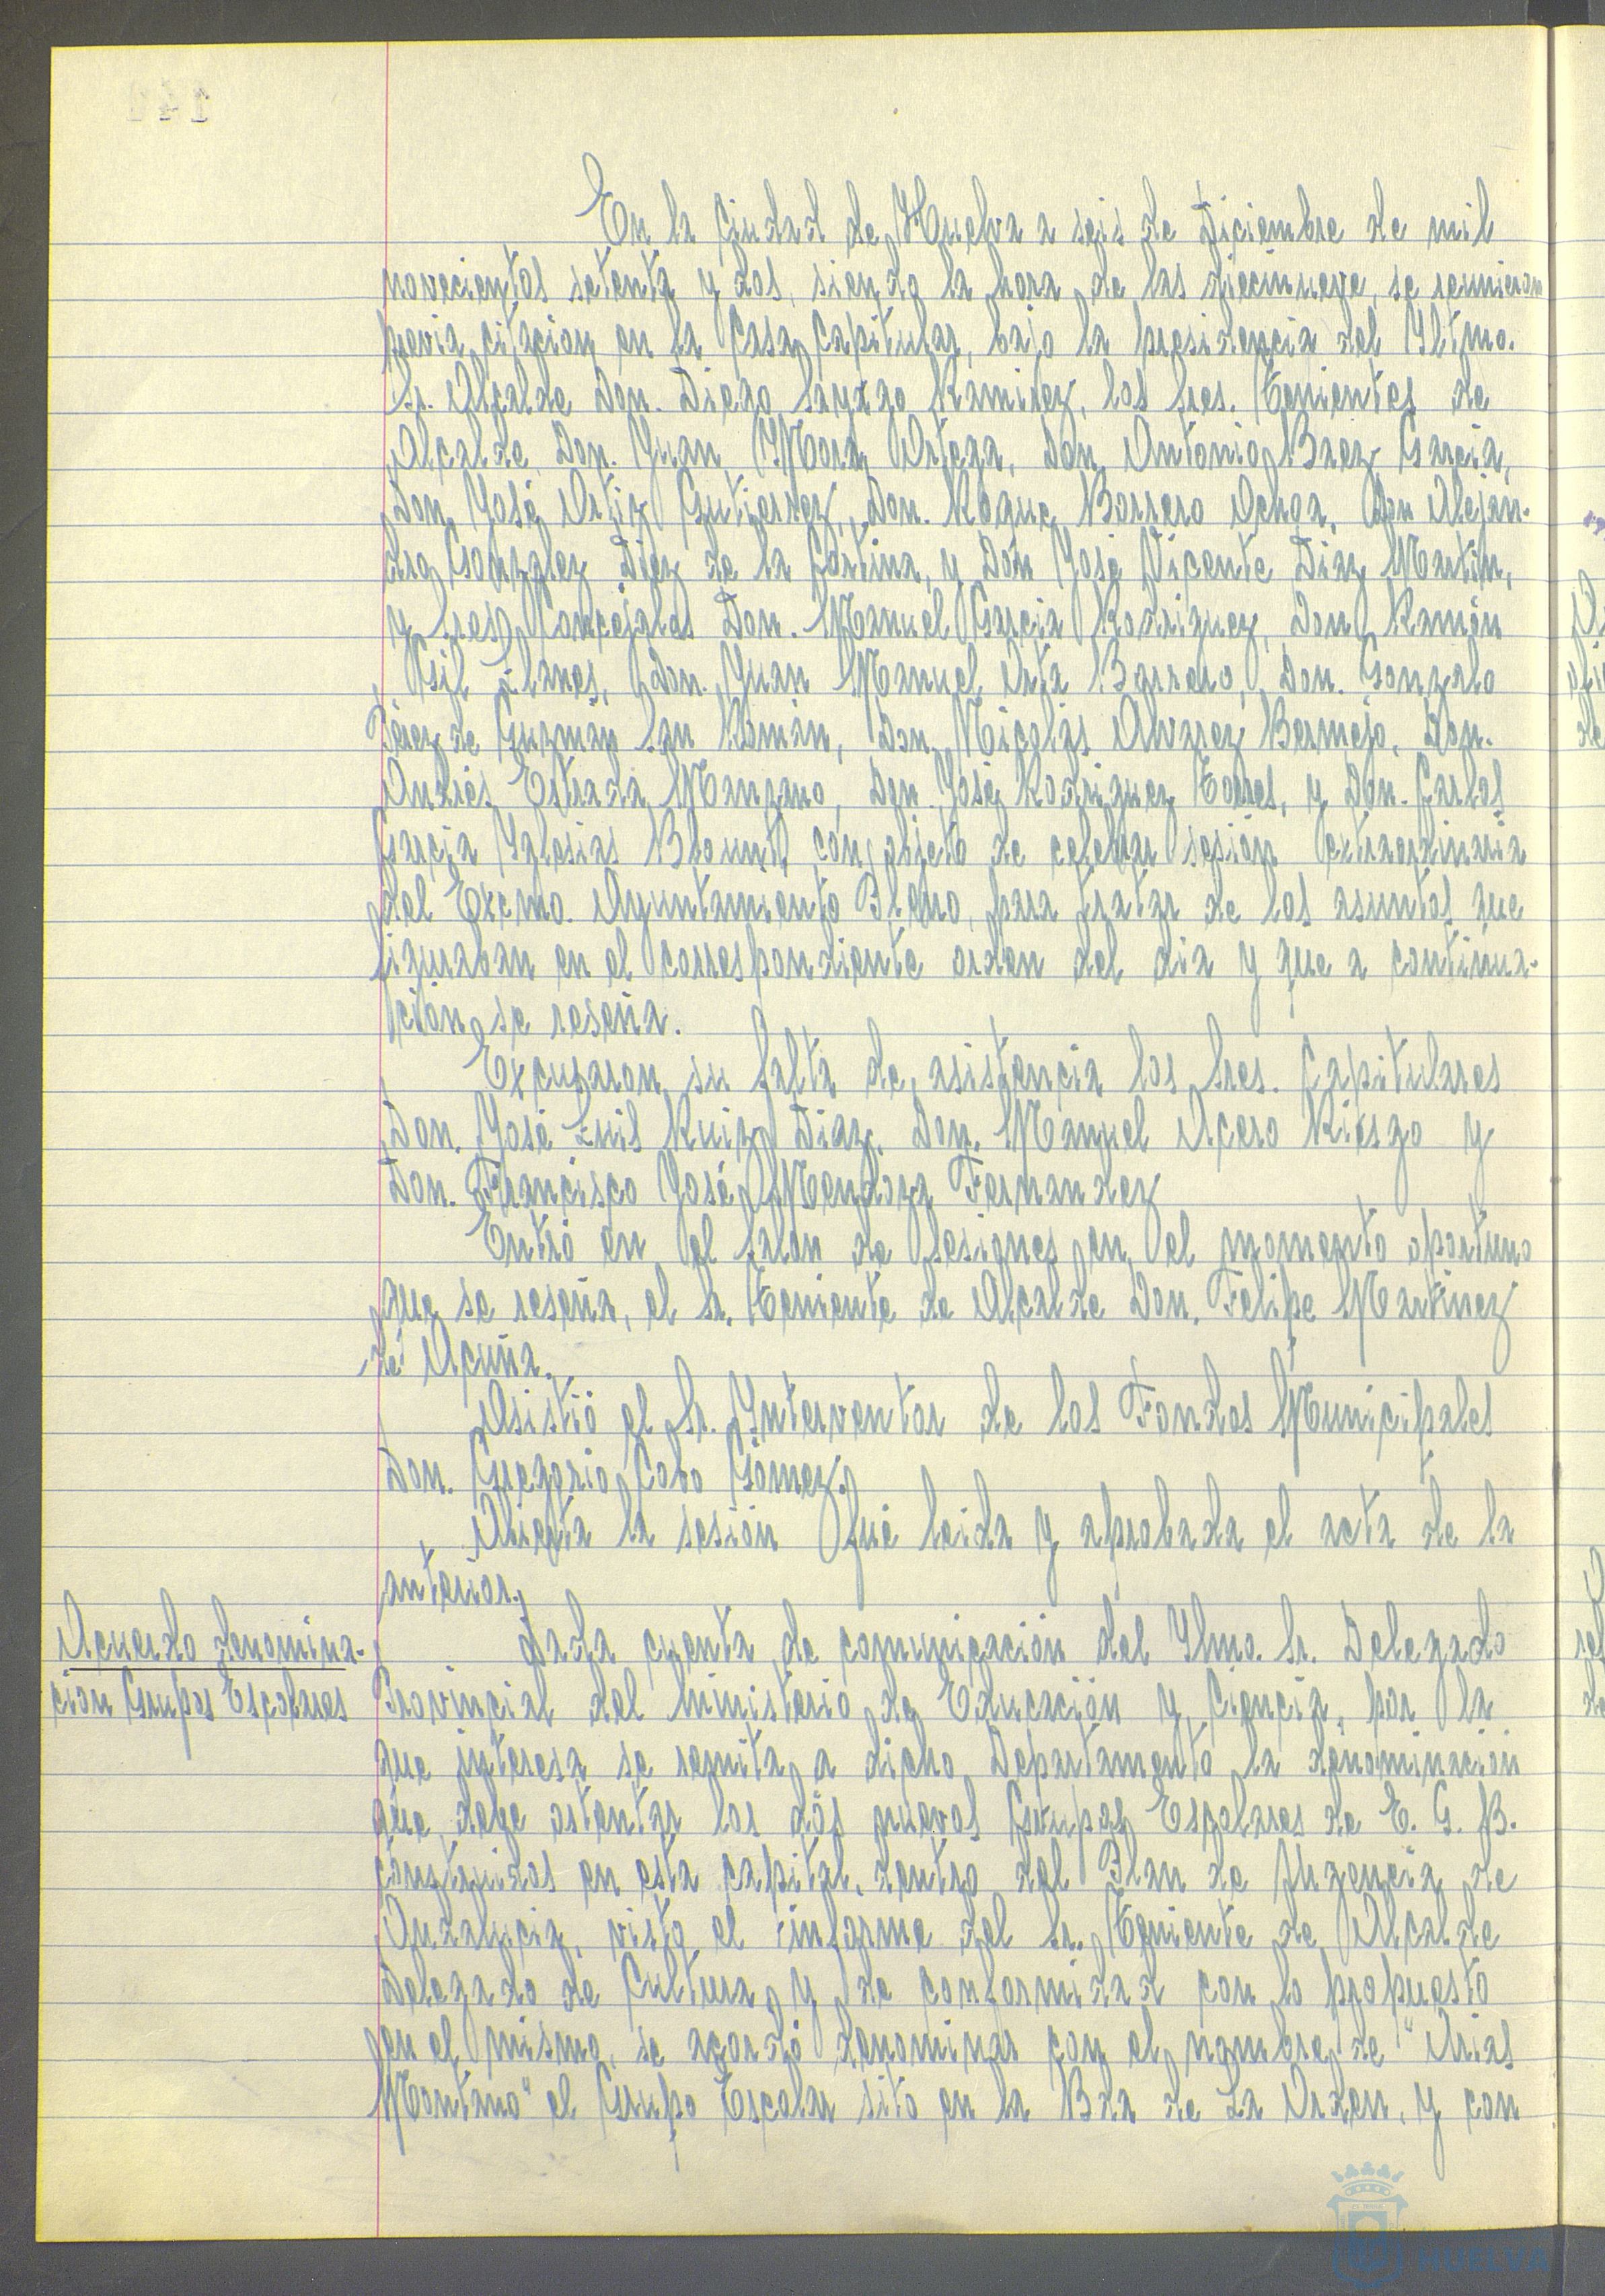 En la Ciudad de Huelva a seis de Diciembre de mil
novecientos setenta y dos, siendo la hora de las diecinueve, se reunieron
previa citación en la Casa Capitular, bajo la presidencia del Yltmo.
Sr. Alcalde Don. Diego Sayago Ramirez, los Sres. Tenientes de
Alcalde, Don. Juan Mora Ortega, Don. Antonio Baez Garcia,
Don José Ortiz Gutierrez, Don. Roque Barrero Ochoa, Don Alejan-
dro Gonzalez Diez de la Cortina, y Don José Vicente Diaz Martin,
y Sres. Concejales Don. Manuel Garcia Rodriguez, Don Ramón
Gil Llanes, Don. Juan Manuel Orta Barrero, Don. Gonzalo
Pérez de Guzmán San Román, Don. Nicolás Alvarez Bermejo, Don.
Andrés Estrada Manzano, Don. José Rodriguez Torres, y Don. Carlos
Garcia Yglesias Blount, con objeto de celebrar sesión extraordinaria
del Excmo. Ayuntamiento Pleno, para tratar de los asuntos que
figuraban en el correspondiente orden del dia y que a continua-
ción se reseña.
Excusaron su falta de asistencia los Sres. Capitulares
Don. José Luis Ruiz Diaz, Don. Manuel Acero Riesgo y
Don. Francisco José Mendoza Fernandez
Entró en el Salon de Sesiones en el momento oportuno
que se reseña, el Sr. Teniente de Alcalde Don. Felipe Martinez
de Acuña.
Asistió el Sr. Interventor de los Fondos Municipales
Don. Gregorio Cobo Gómez.
Abierta la sesión fué leida y aprobada el acta de la
anterior.
Acuerdo denomina-
cion Grupos Escolares
Dada cuenta de comunicación del Ylmo. Sr. Delegado
Provincial del Ministerio de Educación y Ciencia, por la
que interesa se remita a dicho Departamento la denominación
que debe ostentar los dos nuevos Grupos Escolares de E. G. B.
construidos en esta capital, dentro del Plan de Urgencia de
Andalucia, visto el informe del Sr. Teniente de Alcalde
Delegado de Cultura y de conformidad con lo propuesto
en el mismo, se acordó denominar con el nombre de "Arias
Montano" el Grupo Escolar sito en la Bda de La Orden, y con
HUELVA